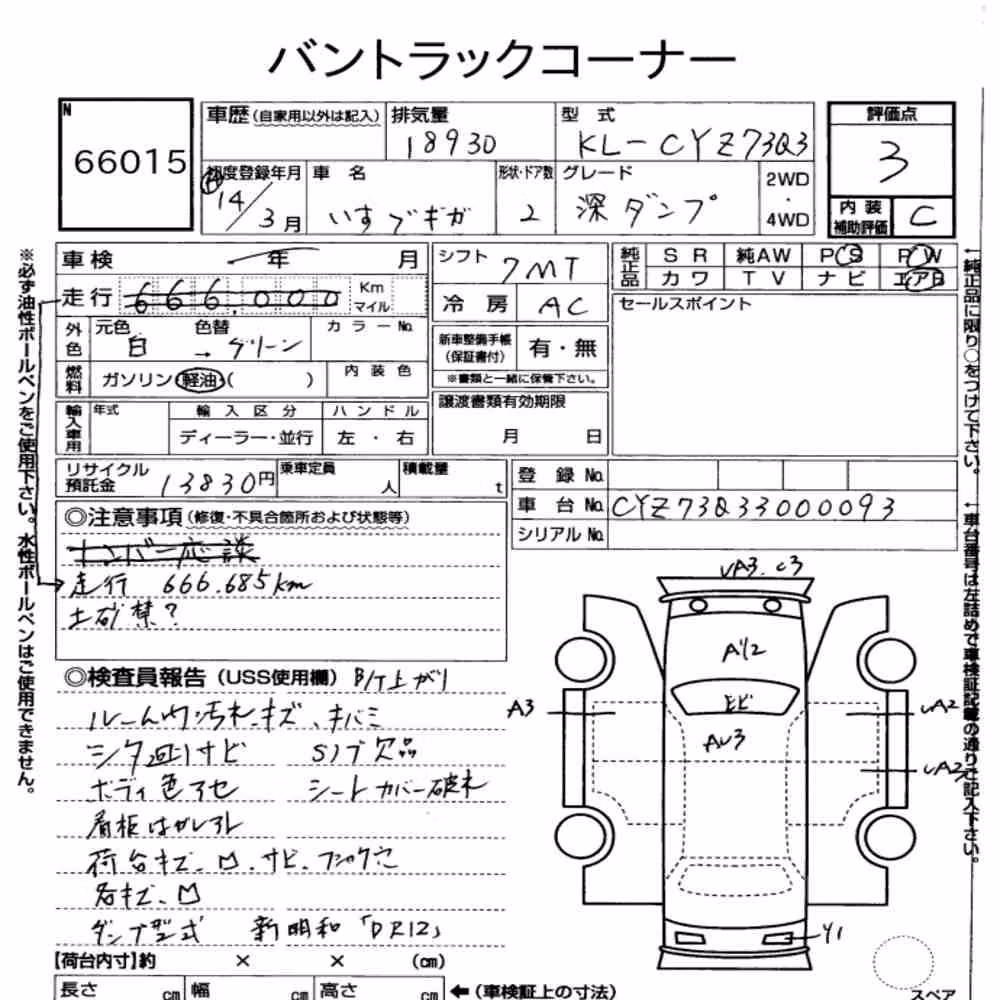 バントラックコーナー
N
66015
車歴(自家用以外は記入)
排気量
18930
型式
KL-CYZ73Q3
評価点
3
内装
補助評価
C
初度登録年月
H14/3月
車名
いすゞギガ
形状・ドア数
2
グレード
深ダンプ
2WD
・
4WD
車検
年 月
走行
666,000
Km
マイル
シフト
7MT
冷房
AC
純正品
SR 純AW PS PW
カワ TV ナビ エアB
セールスポイント
外色
元色
白
色替
→グリーン
カラーNo.
燃料
ガソリン・軽油・( )
内装色
新車整備手帳
(保証書付)
有・無
※書類と一緒に保管下さい。
輸入車用
年式
輸入区分
ディーラー・並行
ハンドル
左・右
譲渡書類有効期限
月 日
リサイクル
預託金
13830円
乗車定員
人
積載量
t
登録No.
車台No.
CYZ73Q33000093
シリアルNo.
◎注意事項(修復・不具合箇所および状態等)
ナンバー応談
走行 666.685km
土砂禁?
◎検査員報告(USS使用欄)
ルーム内汚れ.キズ.
シタ回りサビ
ボディ色アセ
シートカバー破れ
看板はがしアト
荷台キズ.凹.サビ.フック穴
各キズ.凹
ダンプ型式 新明和「DR12」
UA3.C3
AY2
A3
UA2
AU3
UA2
Y1
【荷台内寸】約 × × (cm)
長さ cm 幅 cm 高さ cm
←(車検証上の寸法)
スペア
※必ず油性ボールペンをご使用下さい。水性ボールペンはご使用できません。
←純正品に限り○をつけて下さい。
←車台番号は左詰めで車検証記載の通りご記入下さい。